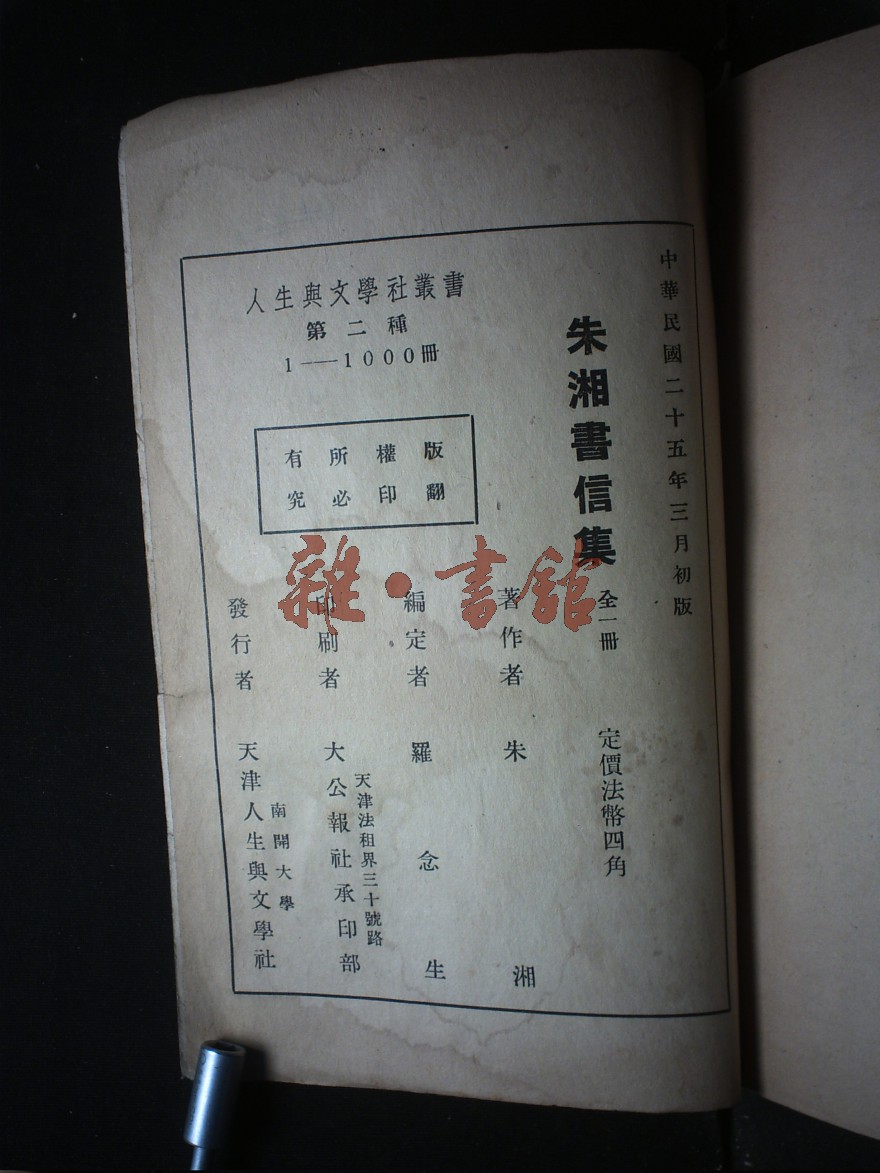 中華民國二十五年三月初版
朱湘書信集 全一冊 定價法幣四角
著作者 朱湘
編定者 羅念生
印刷者 大公報社承印部
天津法租界三十號路
發行者 天津人生與文學社
南開大學
人生與文學社叢書
第二種
1——1000冊
版權所有
翻印必究
雜·書館